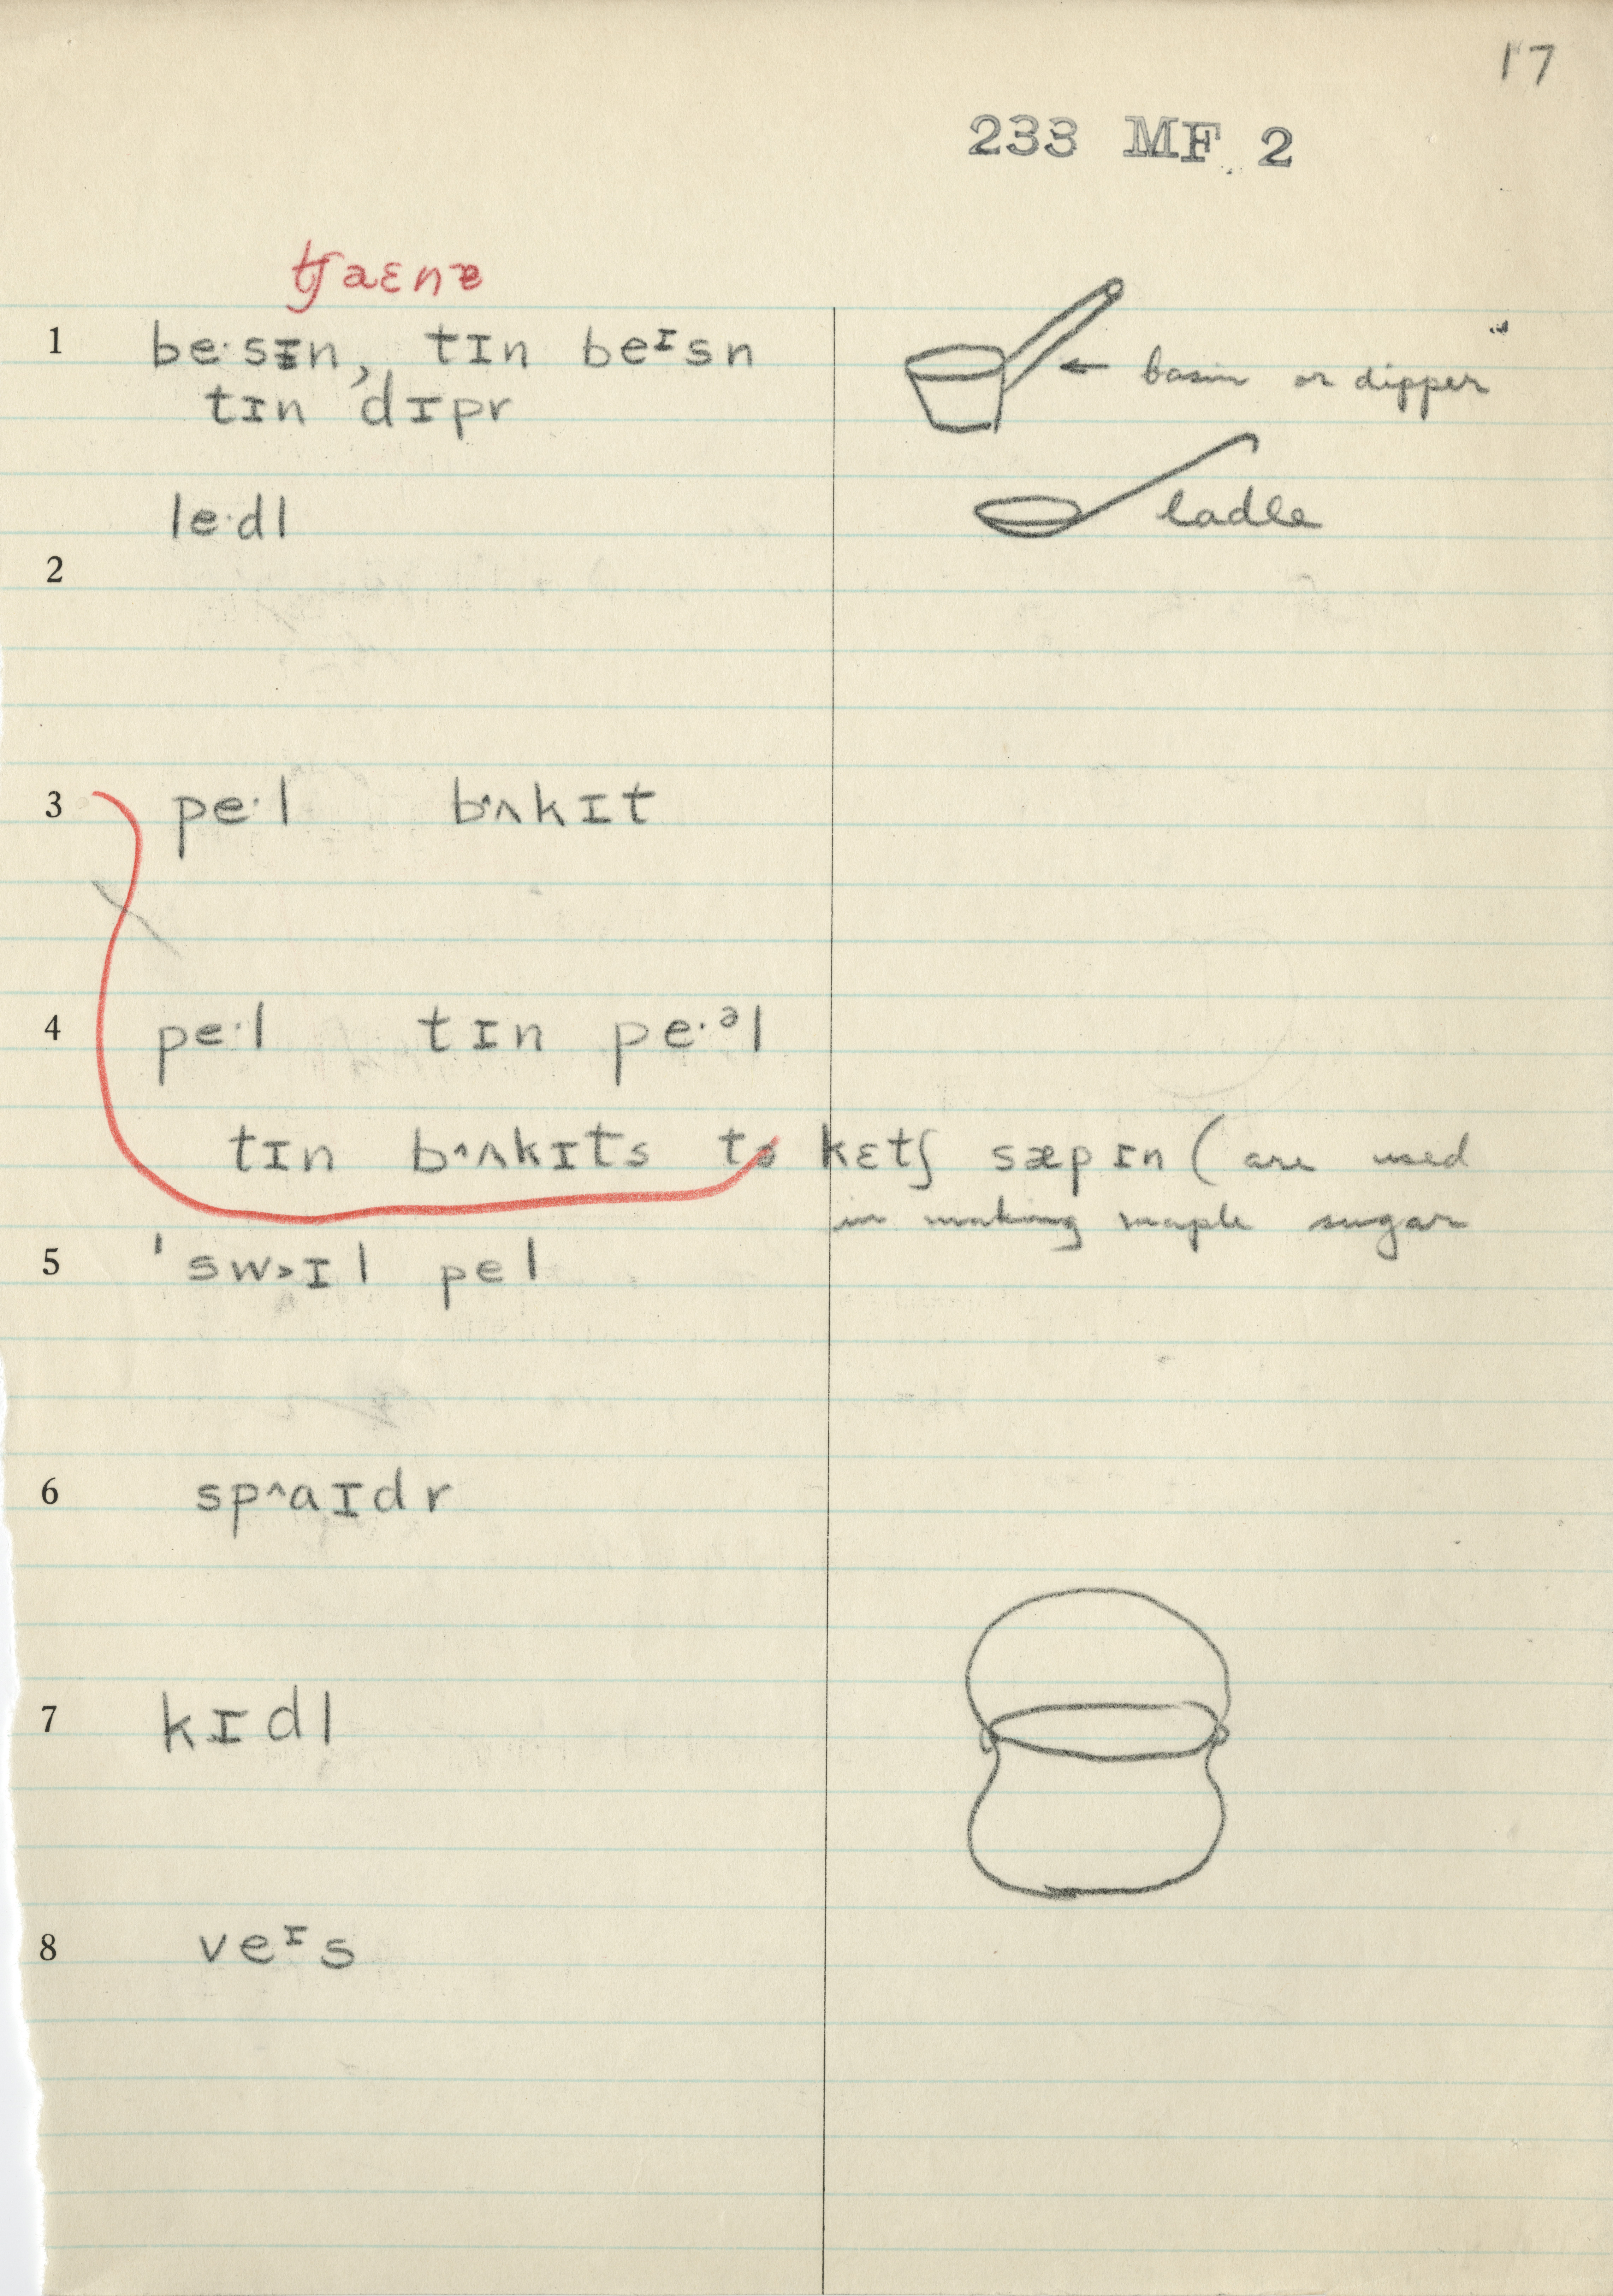 17
233 MF 2
ʧaɛnɐ
1 be·sɪn, tɪn beᴵsn
tɪn ˈdɪpr
← basin or dipper
le·dl
ladle
2
3 pe·l b˄ʌkɪt
4 pe·l tɪn pe·ᵊl
tɪn b˄ʌkɪts tə kɛtʃ sæpɪn (are used
in making maple sugar
5 ˈsw˃ɪl pel
6 sp˄aɪdr
7 kɪdl
8 veᴵs